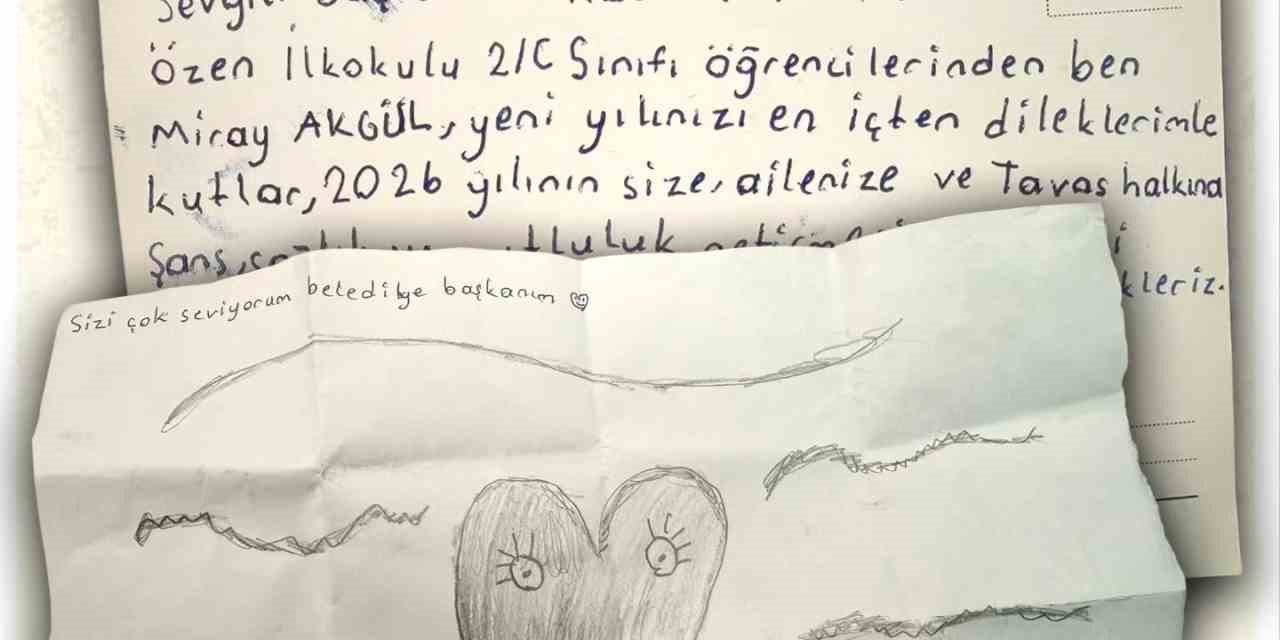 Özen İlkokulu 2/C Sınıfı öğrencilerinden ben
Miray AKGÜL, yeni yılınızı en içten dileklerimle
kutlar, 2026 yılının size, ailenize ve Tavas halkına
Şans,
kleriz.
Sizi çok seviyorum belediye başkanım